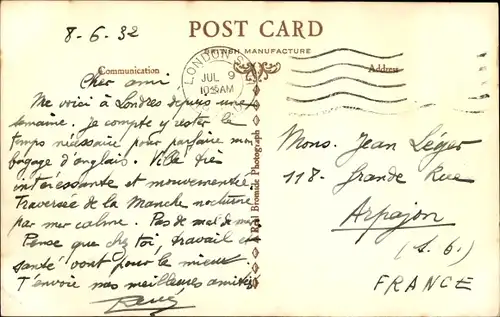 8-6-32
POST CARD
BRITISH MANUFACTURE
Communication
Address
LONDON
JUL 9
AM
Cher ami
Me voici à Londres depuis une
semaine. je compte y rester le
temps nécessaire pour parfaire mon
bagage d'anglais. Ville très
intéressante et mouvementée.
Traversée de la Manche nocturne
par mer calme. Pas de mal de mer
Pense que chez toi, travail et
santé vont pour le mieux.
T'envoie nos meilleures amitiés
A Real Bromide Photograph
Mons. Jean Léger
118- Grande Rue
Arpajon
(S. O.)
FRANCE